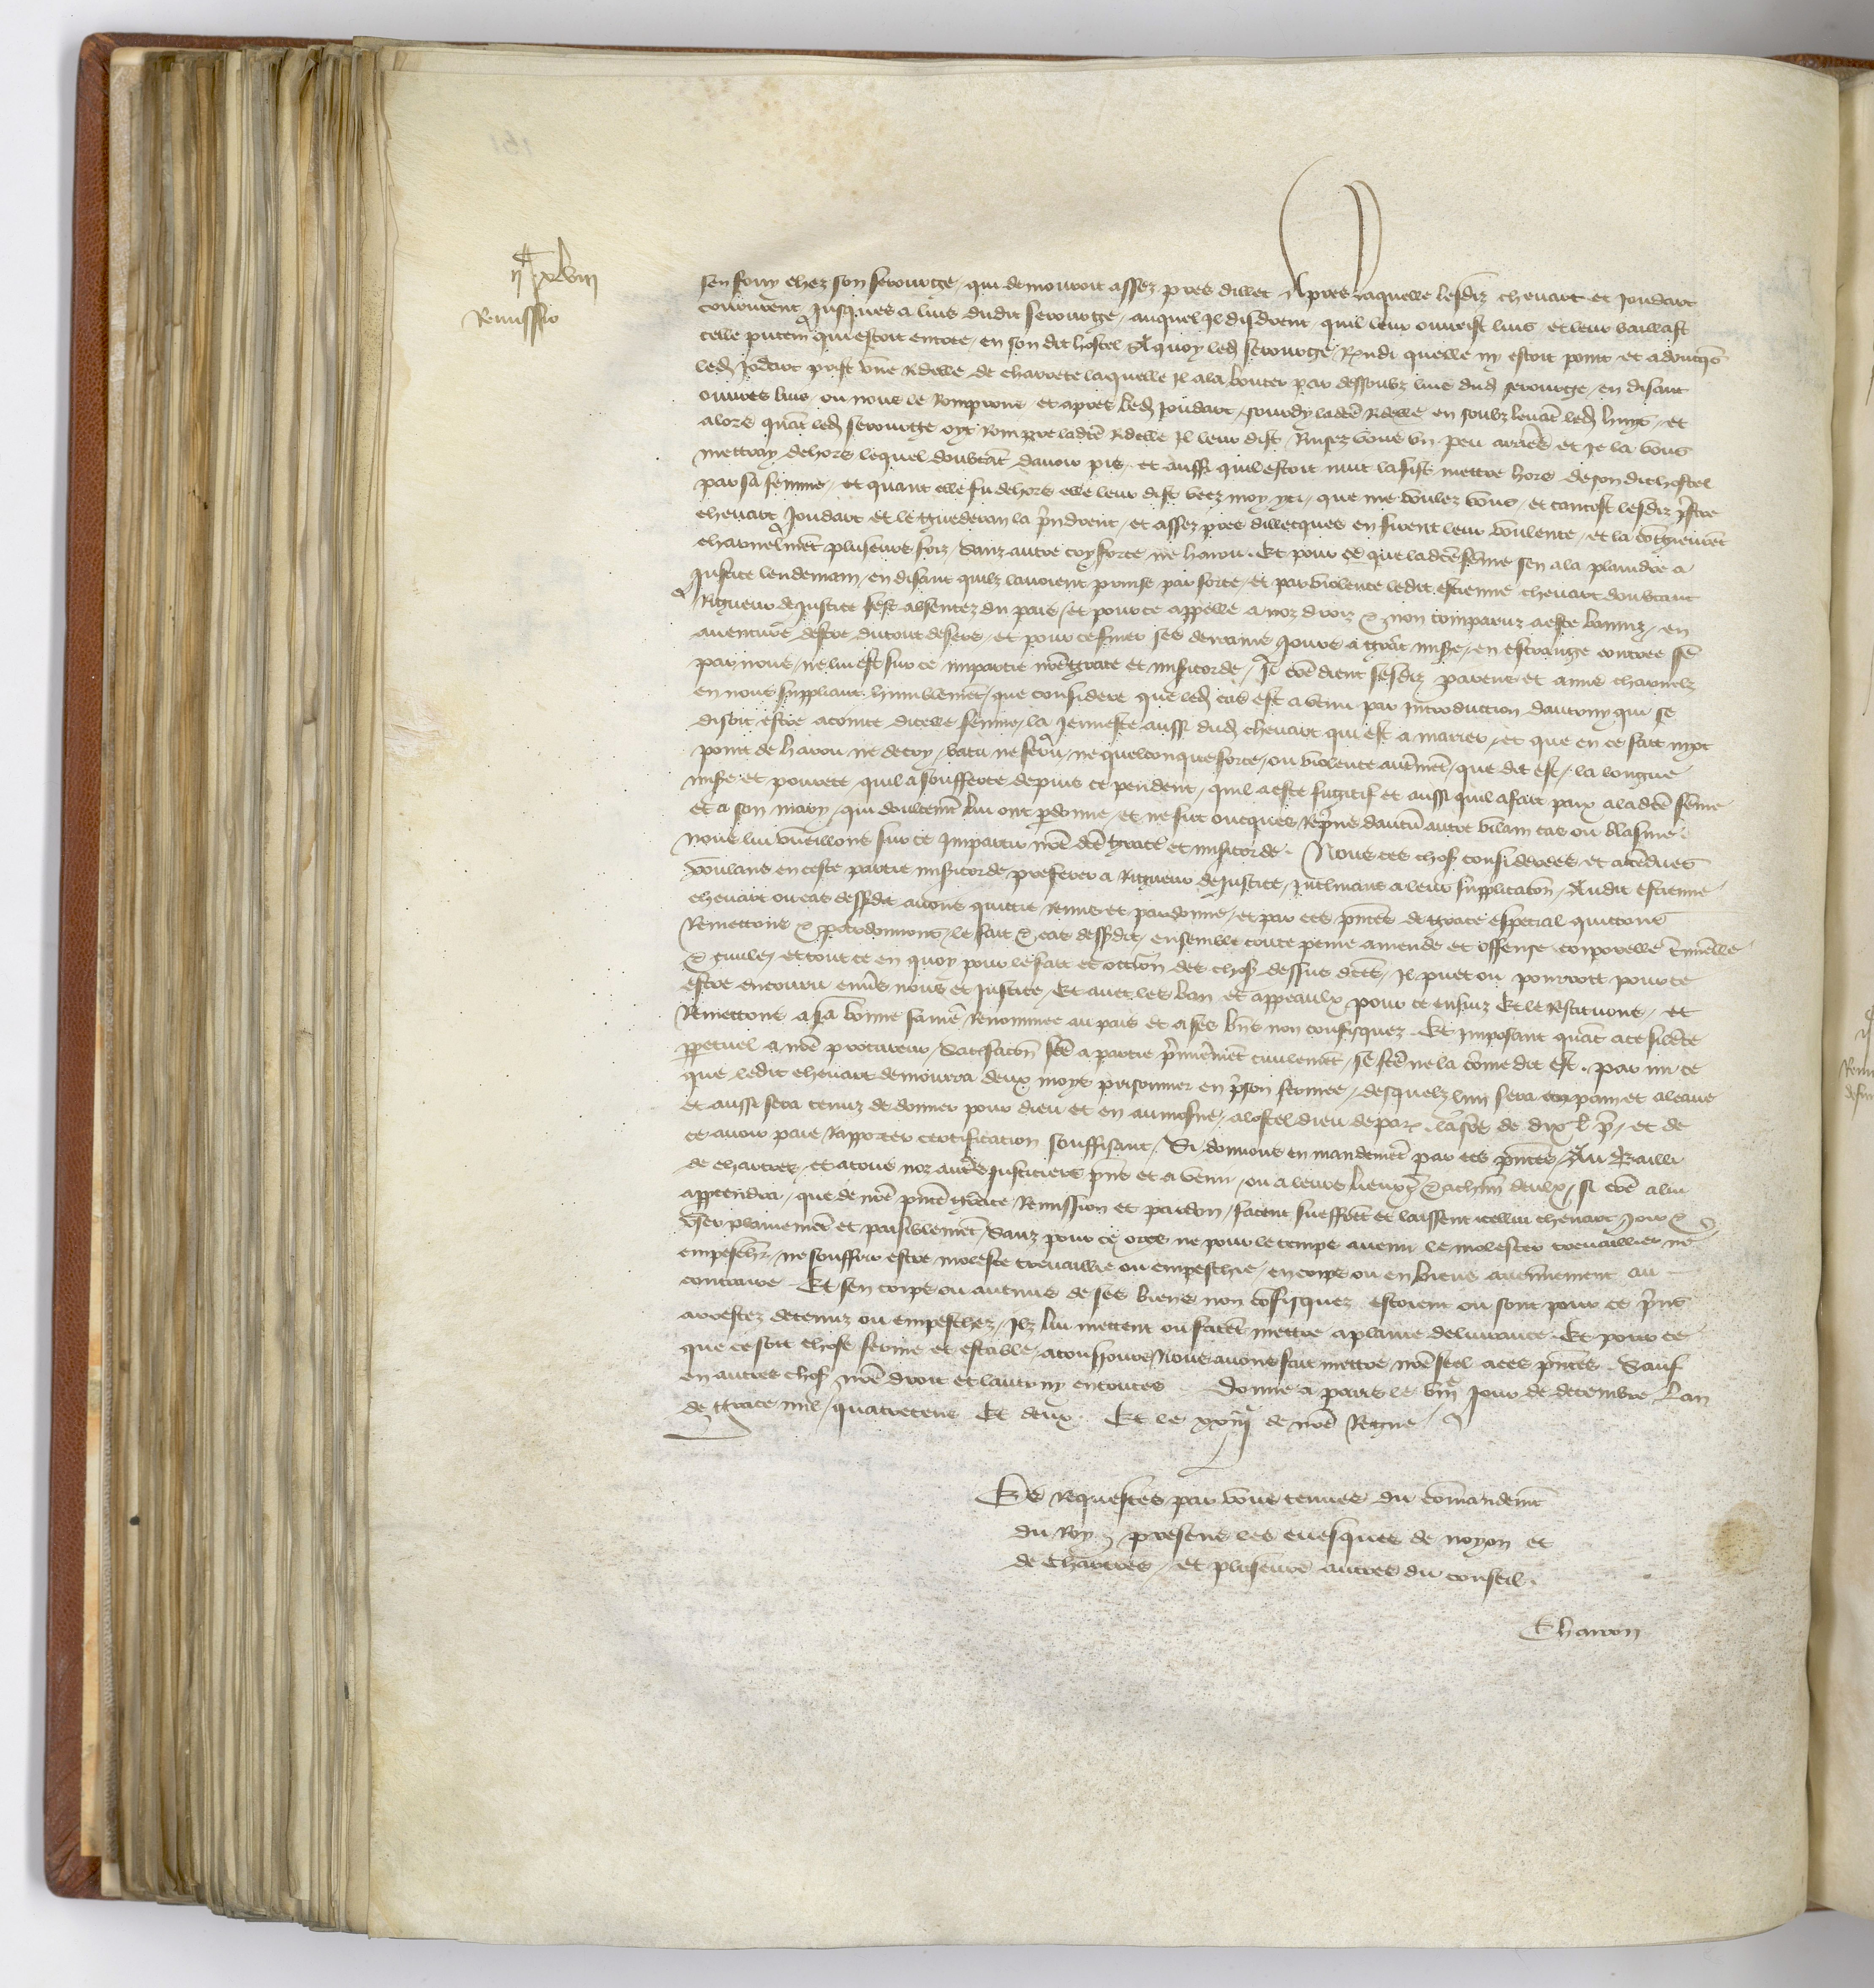 IIc xlviii
Remissio
sen fouy chez son serourge, qui demouroit assez pres dillec Apres laquelle lesdiz chenart et Joudart
coururent Jusques a luis dudit serourge, auquel Il disdrent quil leur ouvrist luis, et leur baillast
celle putain qui estoit entree, en son dit hostel A quoy led serourge Rndi quelle ny estoit point et adoncqs
led Jodart prist une Ridelle de charrete laquelle Il ala bouter par dessoubz luis dud serourge, en disant
ouvres luis ou nous le Romprons et apres led Joudart, sourdy ladte Ridelle en soubz levat led huys, et
alors quat led serourge oyt Rompre ladte Ridelle Il leur dist Rusez vous un peu arriere et Je la vous
mettray dehors lequel doubtat davoir pis, et aussi quil estoit nuit la fist mettre hors de son dit hostel
par sa femme, et quant elle fu dehors elle leur dist veez moy yci, que me voulez vous, et tantost lesdiz pbre
chenart Joudart et le guederon la prindrent, et assez pres dillecques en firent leur voulente, et la congnurent
charnelmet pluseurs foiz, sanz autre coy force, ne harou. Et pour ce que ladte feme sen ala plaindre a
Justice lendemain, en disant quilz lavoient prinse par force, et par violence ledit estienne chenart doubtant
Rigueur de Justice sest absentez du pais, et pour ce appelle a noz droiz & non comparuz a este banniz, en
aventure destre du tout desers, et pour ce finer ses derrains Jours a grat misere, en estrange contree se
par nous, ne lui est sur ce impartie nre grace et misicorde, si coe dient sesdiz parens et amis charnelz
en nous suppliant humblemet, que considere que led cas est avenu par Introduction dautruy qui se
disoit estre acointe dicelle feme, la Jennesse aussi dud chenart qui est a marier, et que en ce fait nyot
point de harou ne de coy, batu ne feru, ne quelconque force, ou violence autmet, que dit est, la longue
misere et povrete quil a soufferte depuis ce pendent, quil a este fugitif et aussi quil a fait paix a ladte feme
et a son mary, qui doulcemt lui ont pdonne, et ne fut oncques Reprins daucun autre vilain cas ou blasme
nous lui vueillons sur ce Impartir nre dte grace et misicorde. Nous ces chos considerees et attedues
voulans en ceste partie misicorde preferer a Rigueur de Justice, Inclinans a leur supplication, Audit estienne
chenart ou cas dessusdit avons quitte Remis et pardonne, et par ces pntes de grace especial quittons
Remettons & pardonnons le fait & cas dessusdit ensemble toute peine amende et offense corporelle criminelle
& civile, et tout ce en quoy pour le fait et occasion des chos dessus dctes, Il puet ou pourroit pour ce
estre encouru envers nous et Justice, Et avec les ban et appeaulx pour ce ensuiz Et le Restituons, et
Remettons a sa bonne fame Renommee au pais et a ses bns non confisquez. Et Imposant quat a ce silence
perpetuel a nre procureur, satisfacon fte a partie premierement civilement, se fte ne la come dit est, par mi ce
que ledit chenart demourra deux moys prisonnier en prison fermee, desquelz lun sera en pain et a leaue
et aussi sera tenuz de donner pour dieu et en aumosne, a lostel dieu de par la some de dix l p, et de
ce avoir paie Rapporter certification souffisant, Si donnons en mandement par ces pntes, Au Bailli
de chartres, et a touz noz autres Justiciers pns et a venir, ou a leurs lieux & a chun deulx, si coe a lui
appartendra, que de nre pnte grace Remission et pardon, facent sueffret et laissent icellui chenart, Joir &
user plainemet et paisiblemet, sanz pour ce ores ne pour le temps avenir le molester travaillier ne
empescher, ne souffrir estre moleste travaillie ou empeschie, en corps ou en biens aucunement au
contraire Et sen corps ou aucuns de ses biens non cofisquez estoient ou sont pour ce prins
arrestez detenuz ou empeschez, Ilz lui mettent ou facent mettre a plaine delivrance. Et pour ce
que ce soit chose ferme et estable, a tousjours Nous avons fait mettre nre scel a ces pntes. Sauf
en autres chos nre droit et lautruy en toutes. Donne a paris le viiie Jour de decembre Lan
de grace mil quatrecens Et deux. Et le xxiiie de nre Regne
Es Requestes par vous tenues du comandemt
du Roy, presens les evesques de noyon et
de Chartres, et pluseurs autres du conseil.
Charron